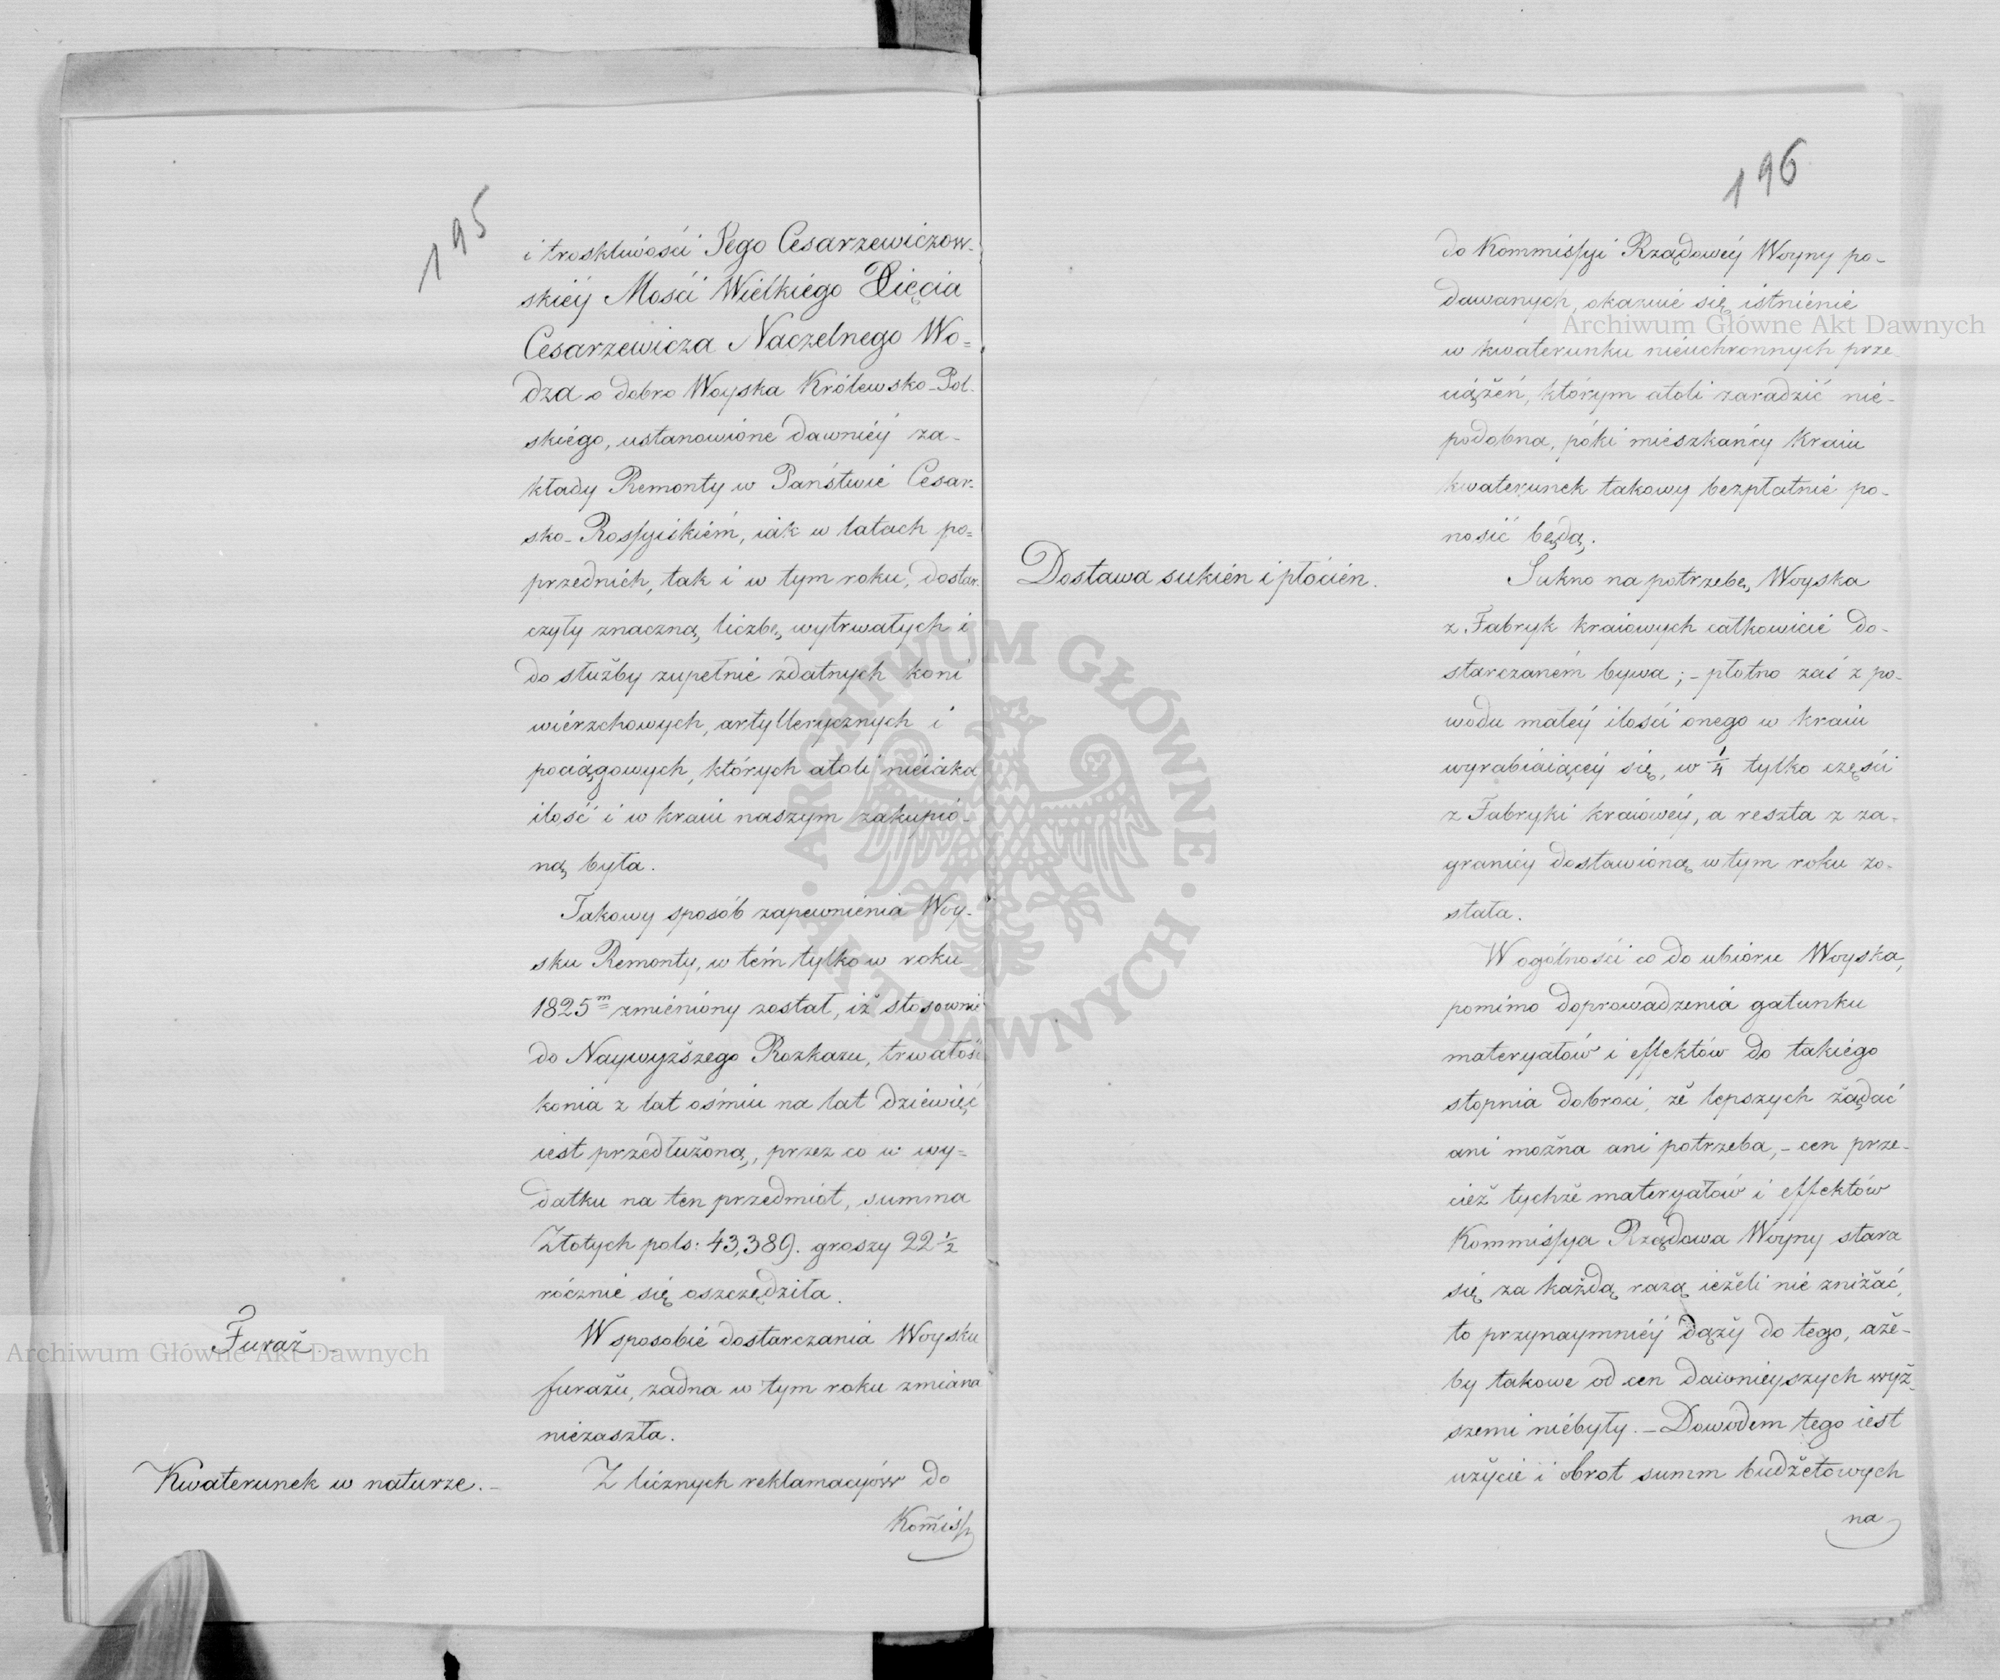 195
i troskliwości Jego Cesarzewiczow-
skiéy Mości Wielkiégo Xięcia
Cesarzewicza Naczelnego Wo=
dza o dobro Woyska Królewsko-Pol-
skiégo, ustanowione dawniéy za-
kłady Remonty w Państwié Cesar-
sko-Rossyiskiém, iak w latach po=
przednich, tak i w tym roku, dostar-
czyły znaczną liczbę wytrwałych i
do służby zupełnie zdatnych koni
wiérzchowych, artyllerycznych i
pociągowych, których atoli nieiaka
ilość i w kraiu naszym zakupio-
ną była.
Takowy sposób zapewniénia Woy-
sku Remonty, w tém tylko w roku
1825m zmiéniony został, iż stosownie
do Naywyższego Rozkazu, trwałość
konia z lat ośmiu na lat dziewięć
iest przedłużoną, przez co w wy=
datku na ten przedmiot, summa
Złotych pols: 43,389. groszy 22 1/2
rocznié się oszczędziła.
Furaż
W sposobié dostarczania Woysku
furażu, żadna w tym roku zmiana
niezaszła.
Kwaterunek w naturze.-
Z licznych reklamacyów do
Kom̄issy
196
do Kommissyi Rządowéy Woyny po-
dawanych, okazuié się istniénié
w kwaterunku niéuchronnych prze-
ciążéń, którym atoli zaradzić nié-
podobna, póki miészkańcy Kraiu
kwaterunek takowy bezpłatnié po-
nosić będą.
Dostawa sukién i płócién.
Sukno na potrzebę Woyska
z Fabryk kraiowych całkowicié do-
starczaném bywa; - płótno zaś z po-
wodu małéy ilości onego w kraiu
wyrabiaiącéy się, w 1/4 tylko części
z Fabryki kraiowéy, a reszta z za-
granicy dostawioną w tym roku zo-
stała.
W ogólności co do ubioru Woyska,
pomimo doprowadzenia gatunku
materyałów i effektów do takiégo
stopnia dobroci, że lepszych żądać
ani można ani potrzeba, - cen prze-
cież tychże materyałów i effektów
Kommissya Rządowa Woyny stara
się za każdą razą ieżeli nié zniżać,
to przynaymniéy dąży do tego, aże-
by takowe od cen dawnieyszych wyż-
szemi niébyły. - Dowodem tego iest
użycié i obrot summ budżetowych
na
Archiwum Główne Akt Dawnych
Archiwum Główne Akt Dawnych
ARCHIWUM GŁÓWNE · AKT DAWNYCH ·